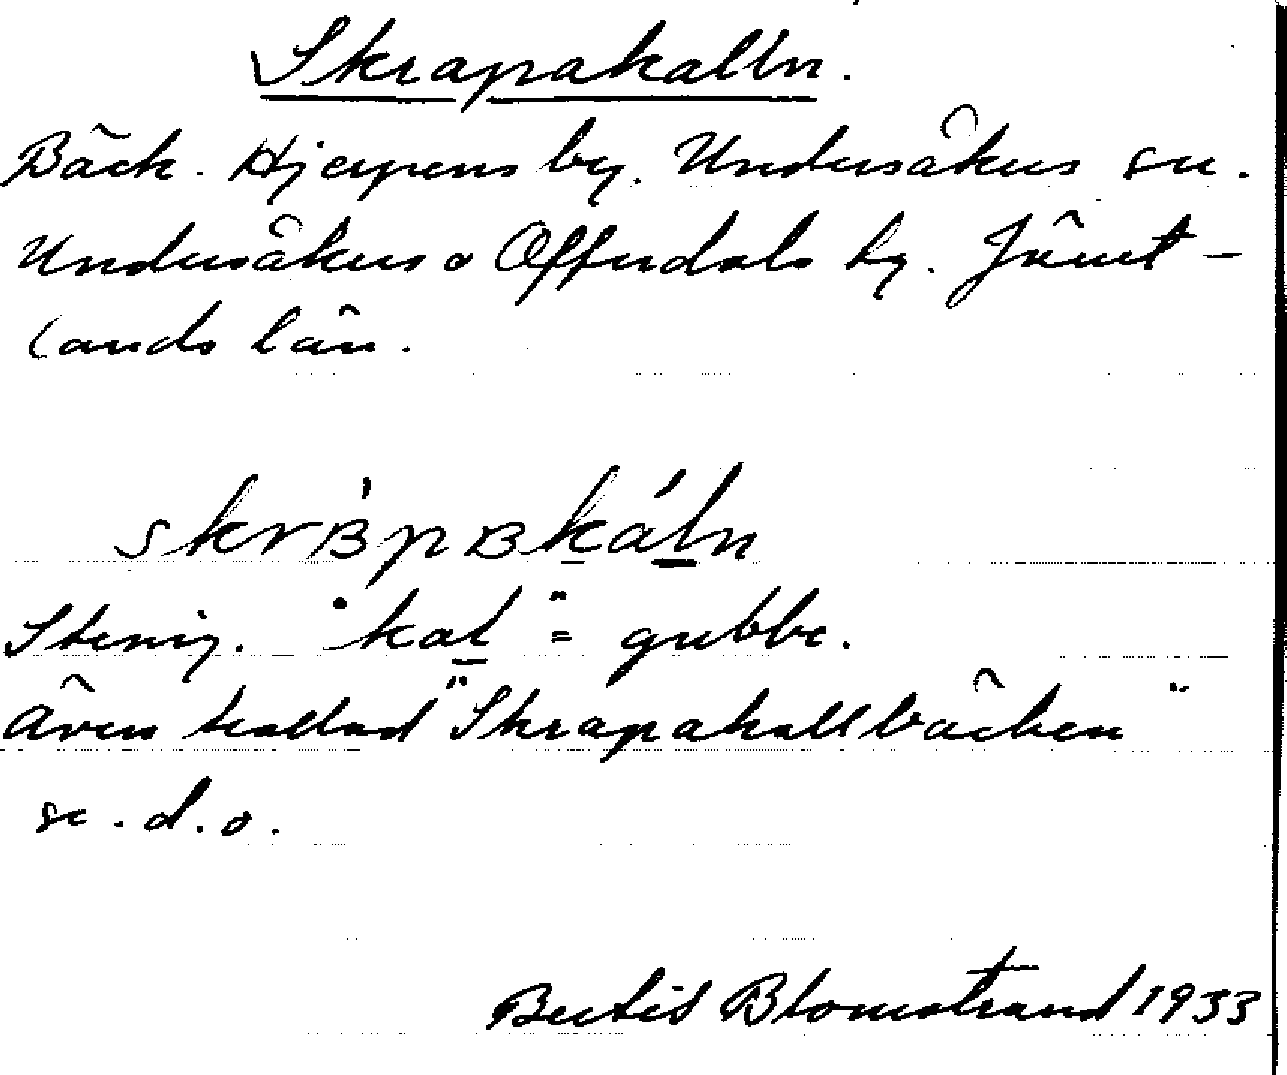 Skrapakalln.
Bäck. Hjerpens by. Undersåkers sn.
Undersåkers o Offerdals tg. Jämt-
lands län.
skrʙ̀pʙkáln
Stenig. "kal" = gubbe.
Även kallad "Skrapakallbäcken"
se. d. o.
Bertil Blomstrand 1933